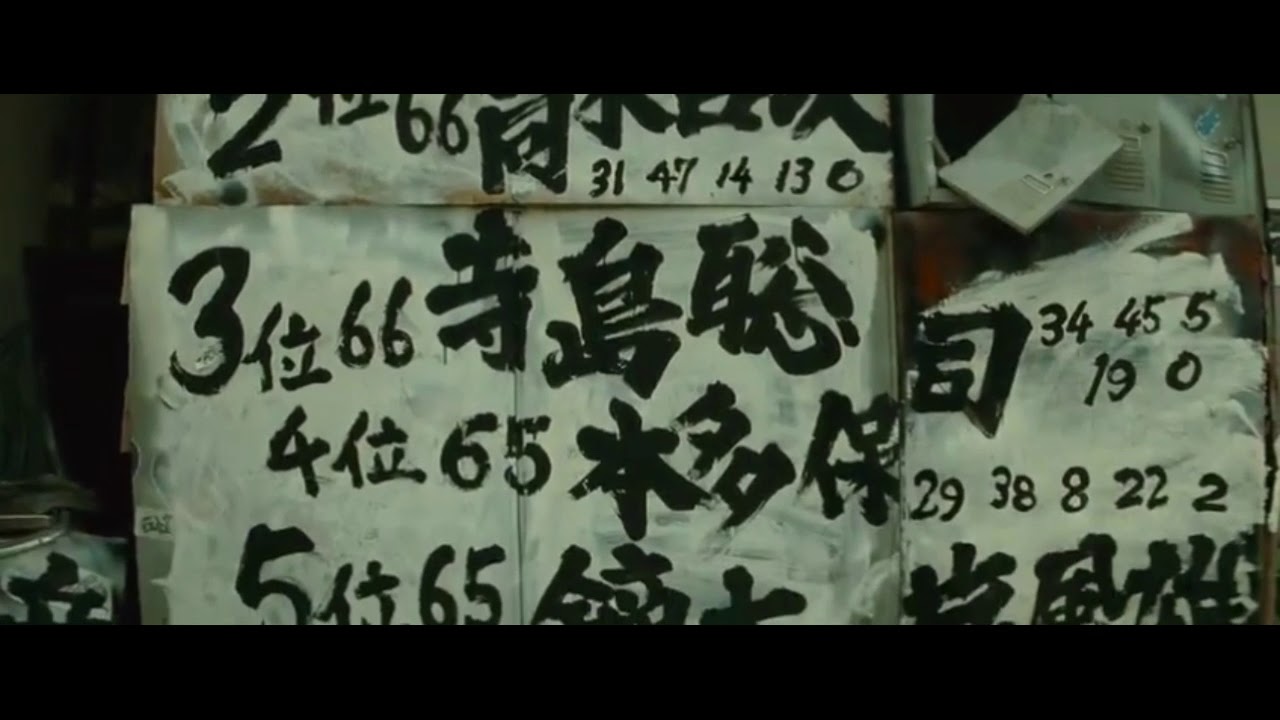 2位 66
31 47 14 13 0
3位 66 寺島聡司 34 45 5
19 0
4位 65 本多保 29 38 8 22 2
5位 65